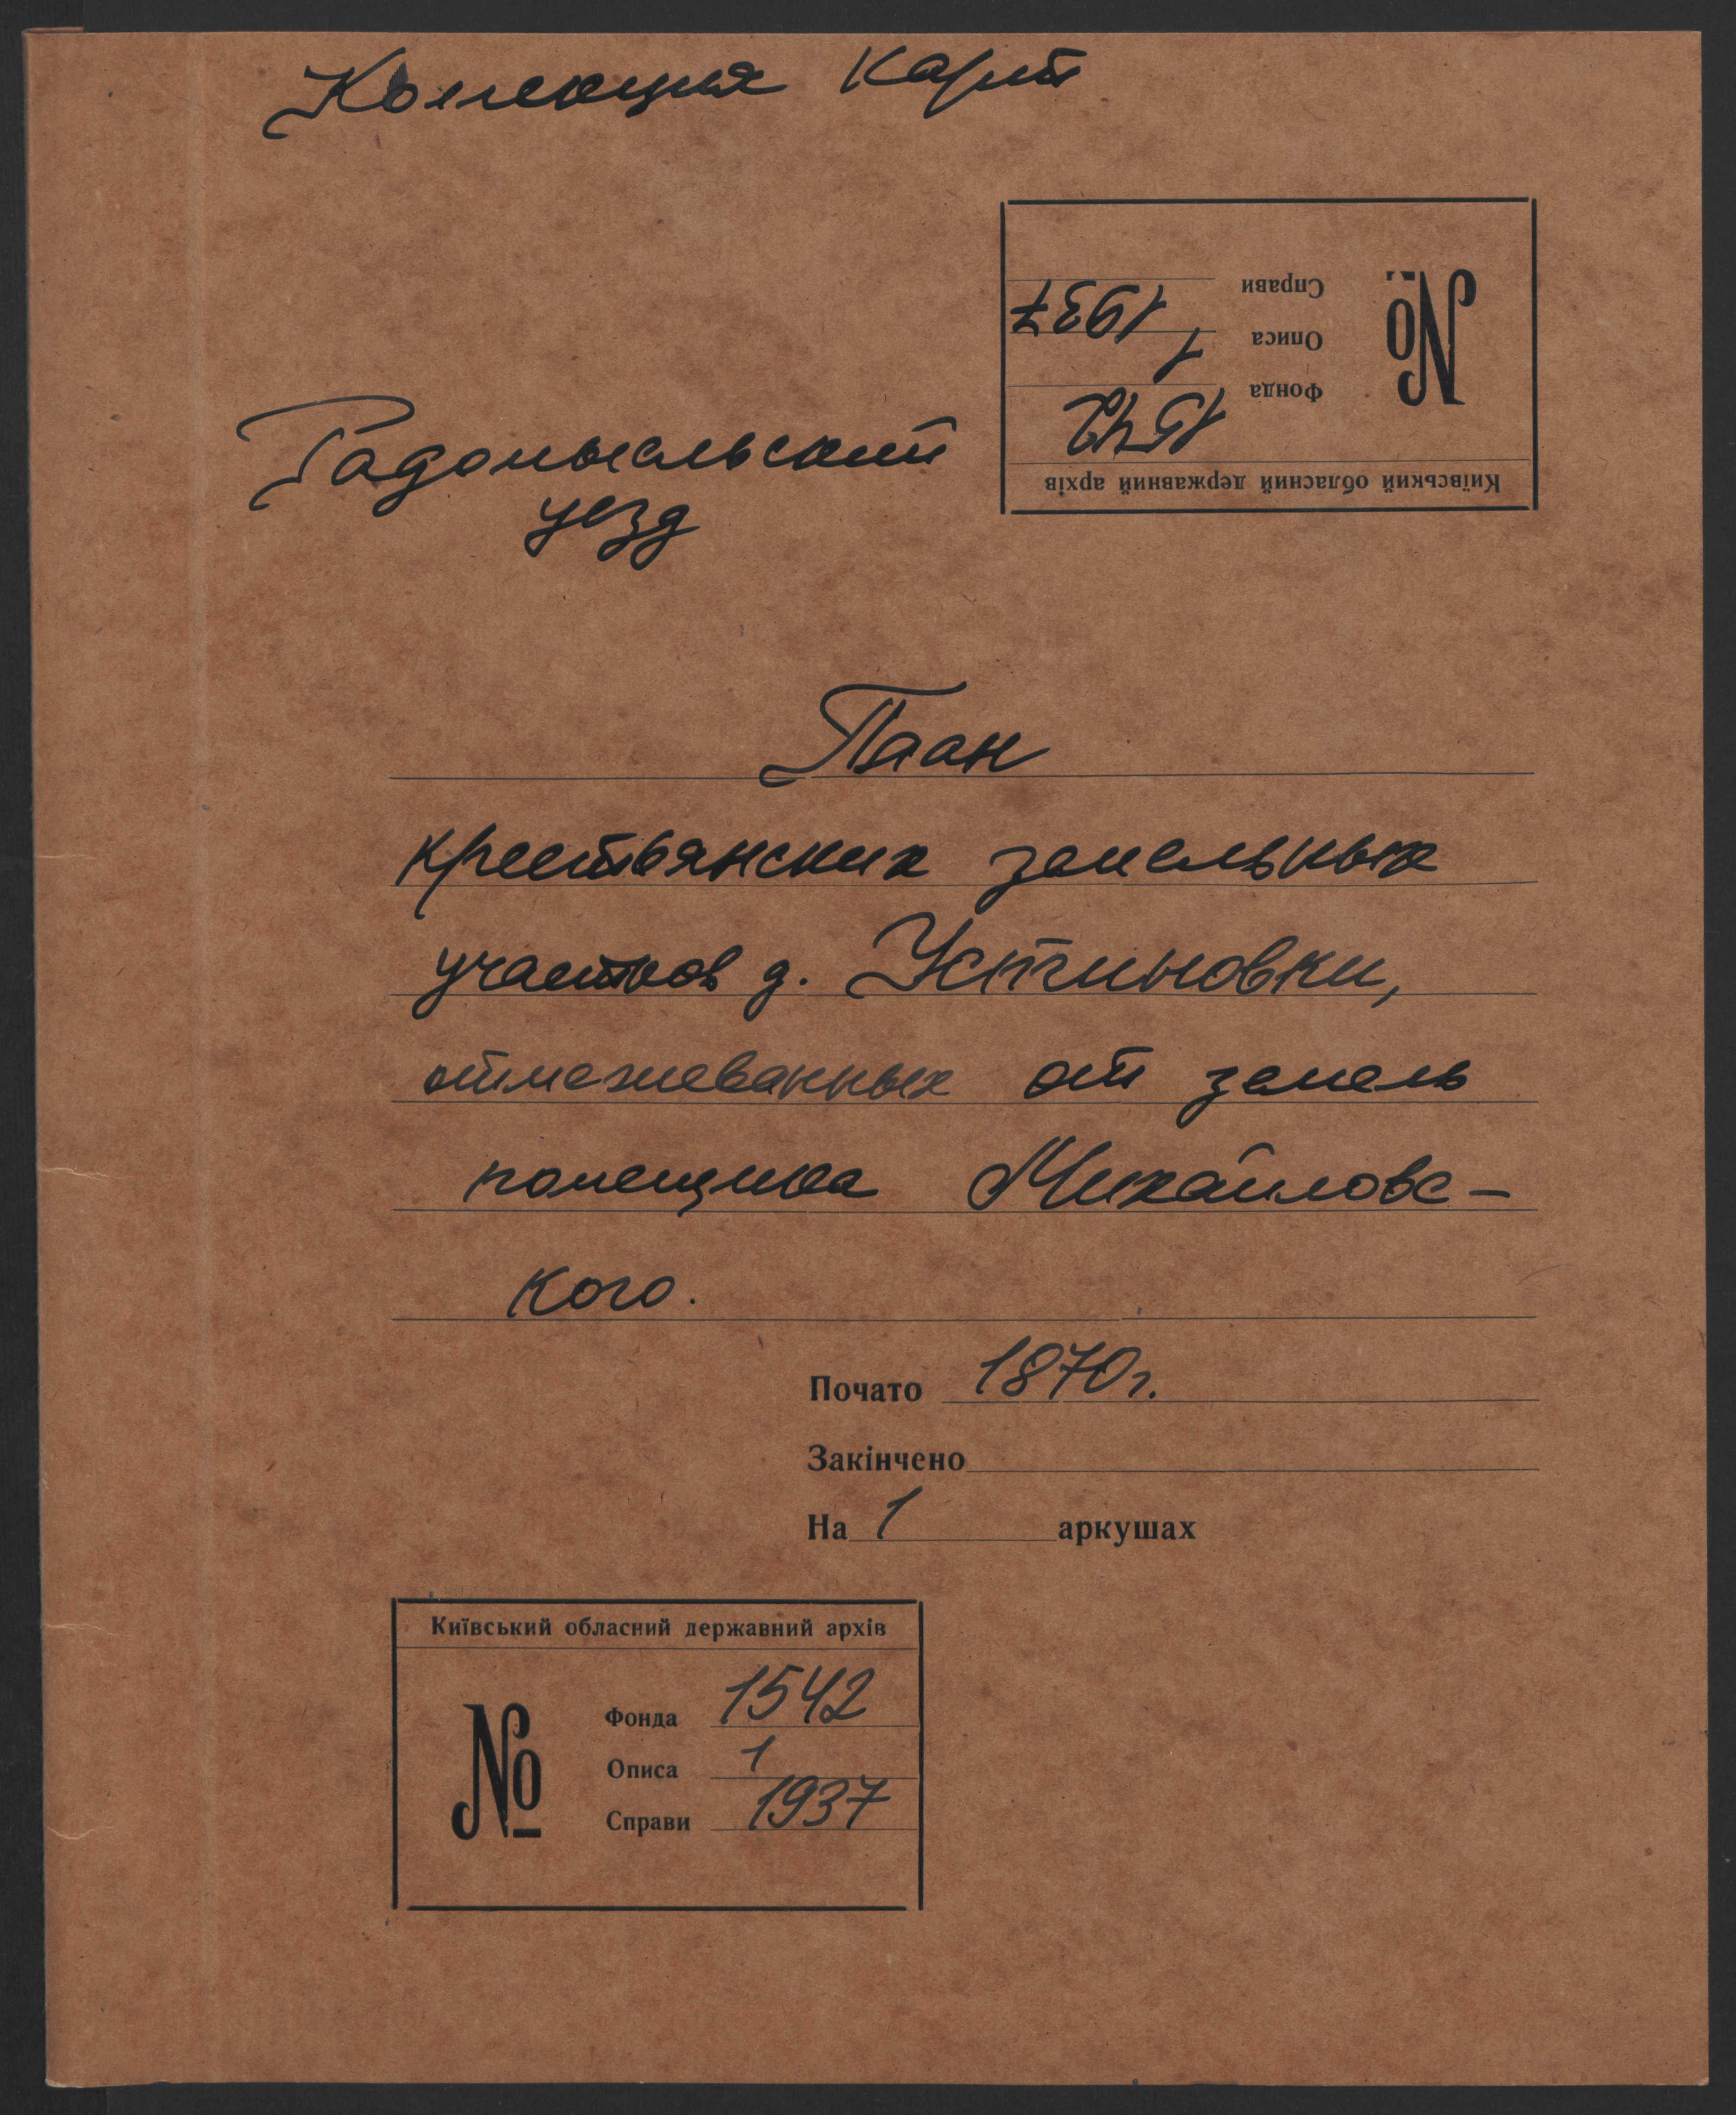 Коллекция карт
Київський обласний державний архів
№
Фонда 1542
Описа 1
Справи 1937
Радомысльский
уезд
План
крестьянских земельных
участков д. Устиновки,
отмежеванных от земель
помещика Михайловс-
кого.
Почато 1870г.
Закінчено
На 1 аркушах
Київський обласний державний архів
№
Фонда 1542
Описа 1
Справи 1937